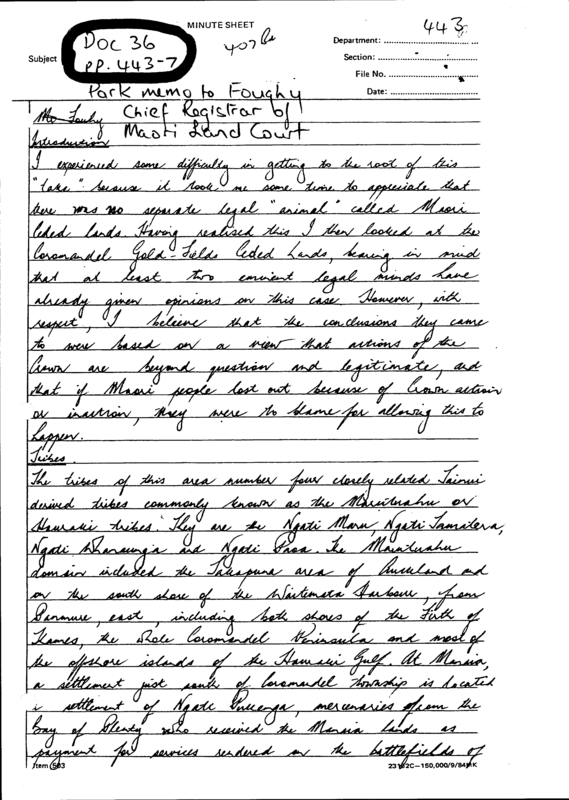 MINUTE SHEET
443
DOC 36
pp. 443-7
407
Subject
Department:
Section:
File No.
Date:
Park memo to Foughy
Chief Registrar of
Maori Land Court
Mr
Introduction
I experienced some difficulty in getting to the root of this
"take" because it took me some time to appreciate that
there was no separate legal "animal" called Maori
Ceded lands. Having realised this I then looked at the
Coromandel Gold-Fields Ceded Lands, bearing in mind
that at least two eminent legal minds have
already given opinions on this case. However, with
respect, I believe that the conclusions they came
to were based on a view that actions of the
Crown are beyond question and legitimate, and
that if Maori people lost out because of Crown action
or inaction, they were to blame for allowing this to
happen.
Tribes.
The tribes of this area number four closely related Tainui
derived tribes commonly known as the Marutuahu or
Hauraki tribes. They are the Ngati Maru, Ngati Tamatera,
Ngati Whanaunga and Ngati Paoa. The Marutuahu
domain included the Takapuna area of Auckland and
on the south shore of the Waitemata Harbour, from
Panmure, east, including both shores of the Firth of
Thames, the whole Coromandel Peninsula and most of
the offshore islands of the Hauraki Gulf. At Manaia,
a settlement just south of Coromandel township is located
a settlement of Ngati Pukenga, mercenaries from the
Bay of Plenty who received the Manaia lands as
payment for services rendered on the battlefields of
Item 503
23192C—150,000/9/84MK